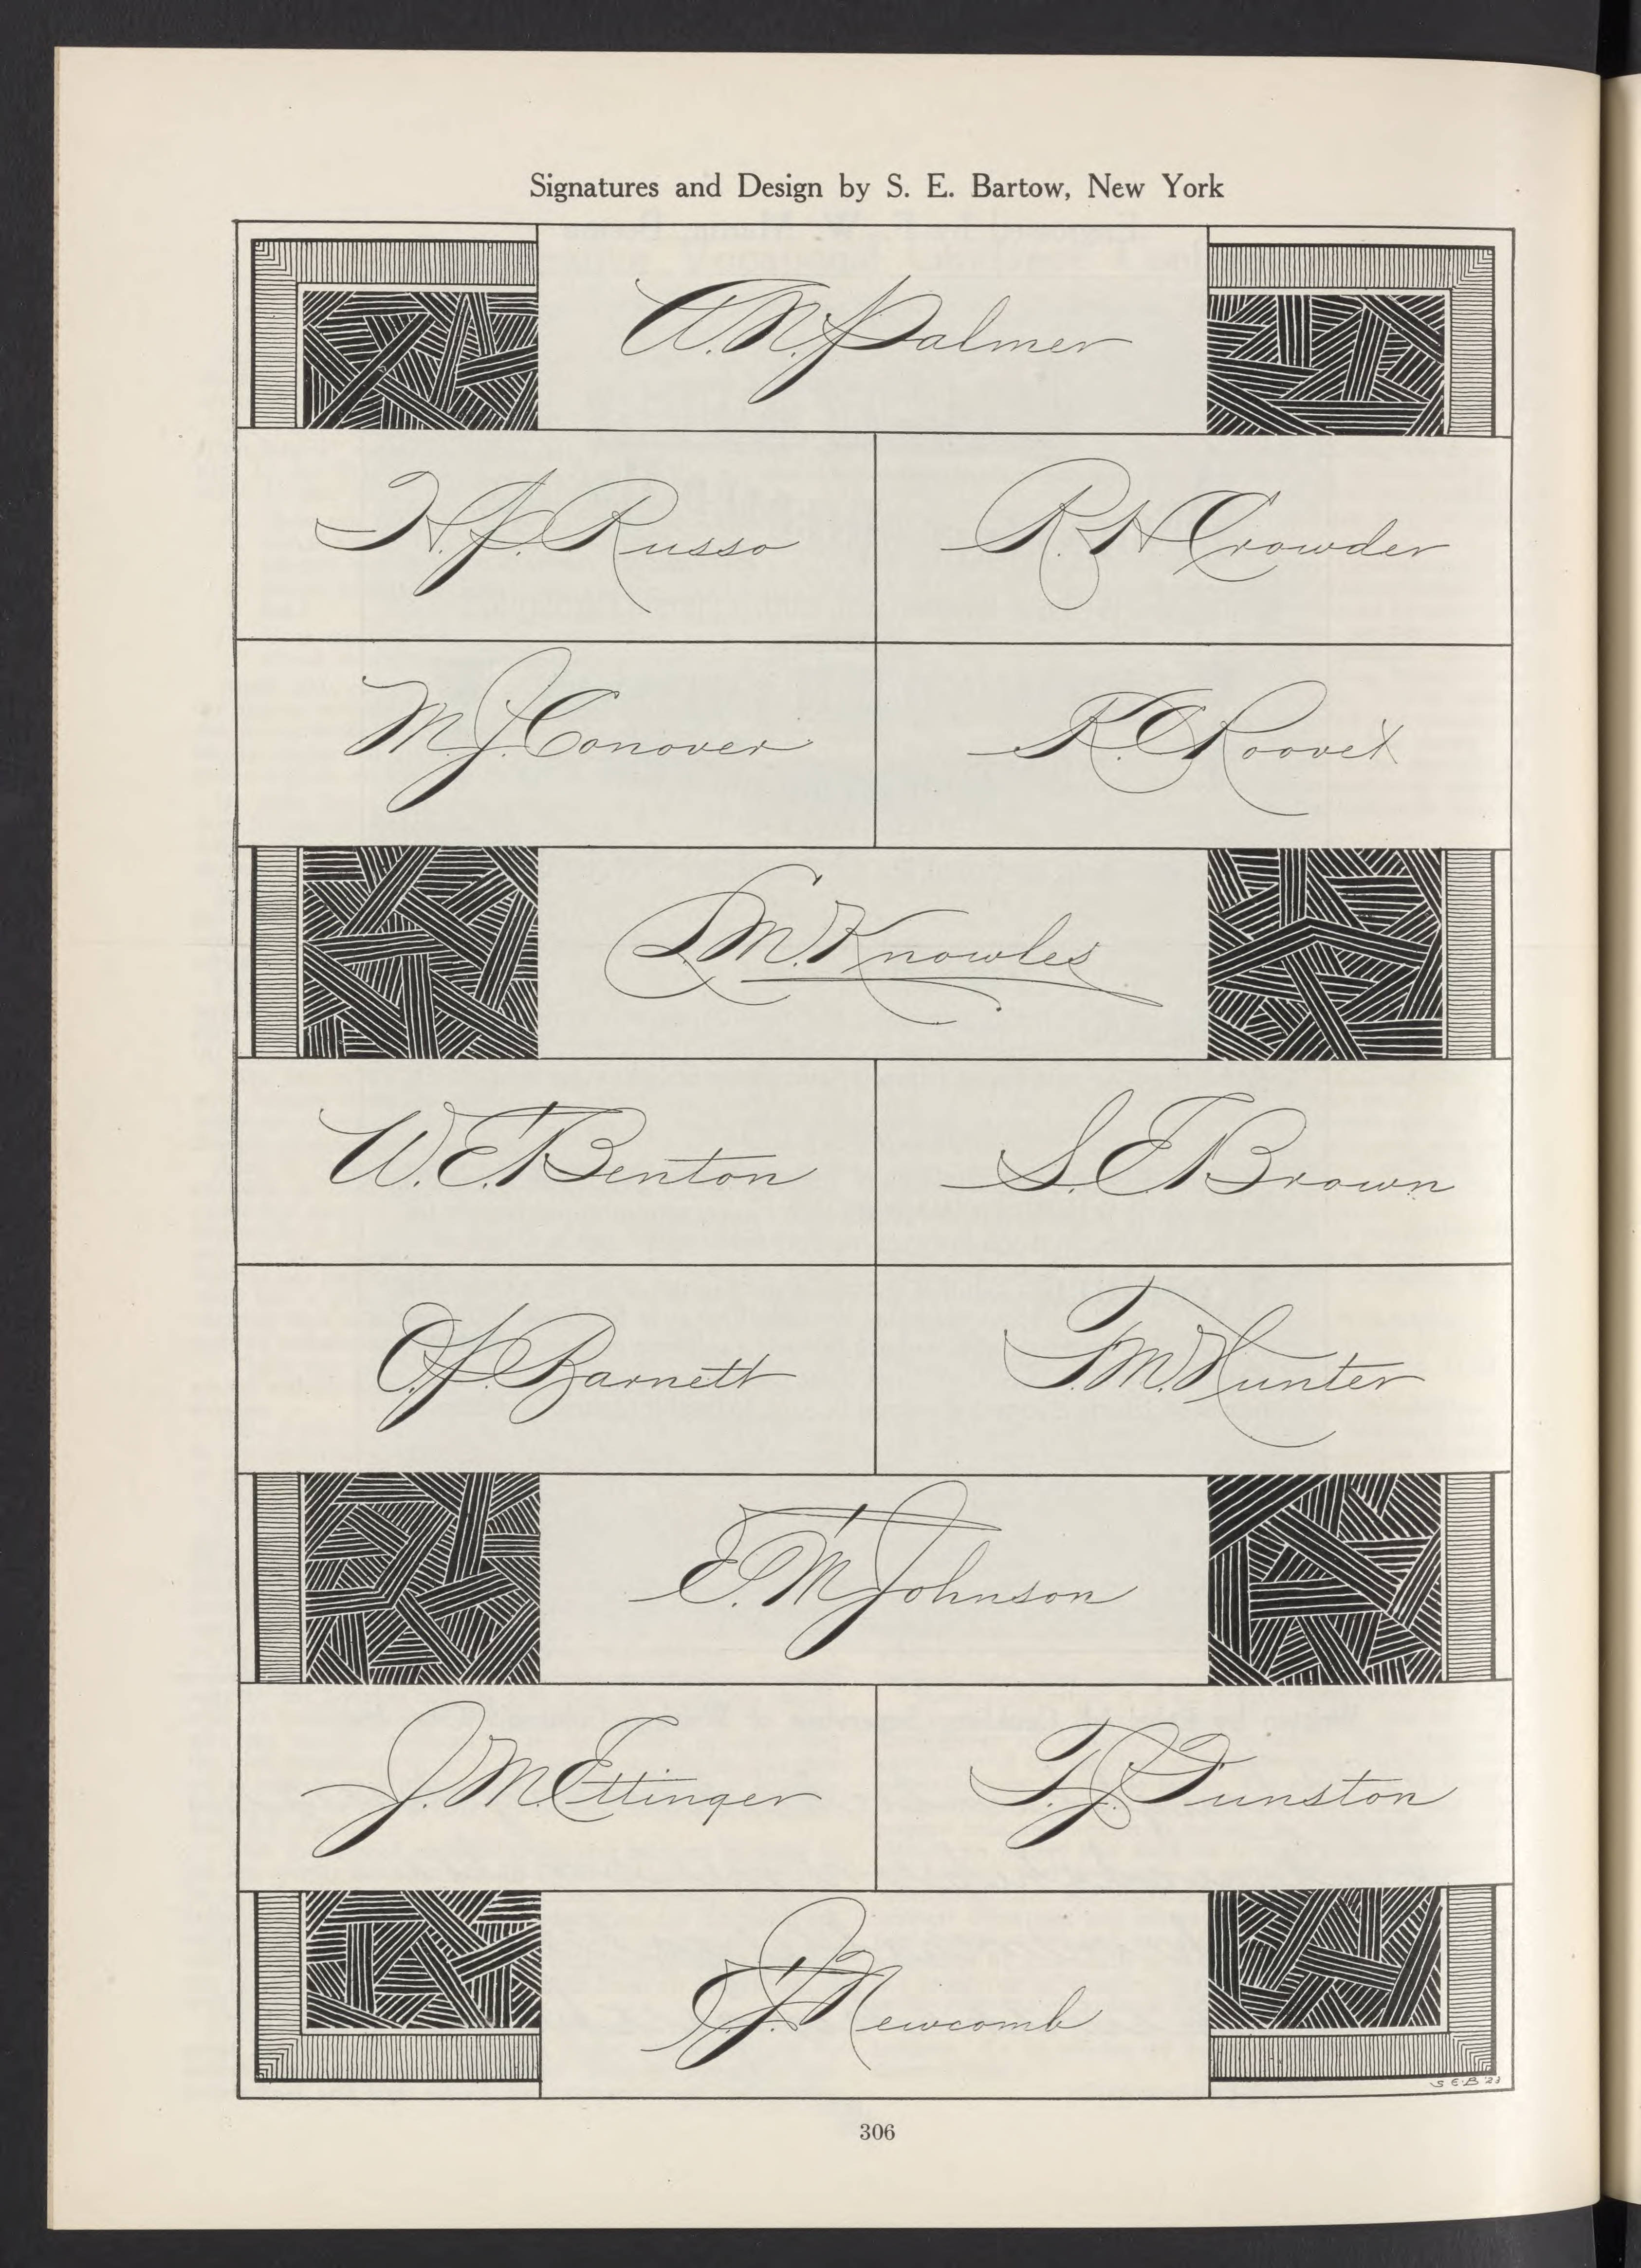 Signatures and Design by S. E. Bartow, New York
A. M. Palmer
H. J. Russo
R. H. Crowder
M. J. Conover
R. C. Roover
S. M. Knowles
W. E. Benton
S. E. Brown
C. J. Barnett
T. M. Hunter
E. M. Johnson
J. M. Ettinger
T. J. Funston
J. Newcomb
S E B '23
306